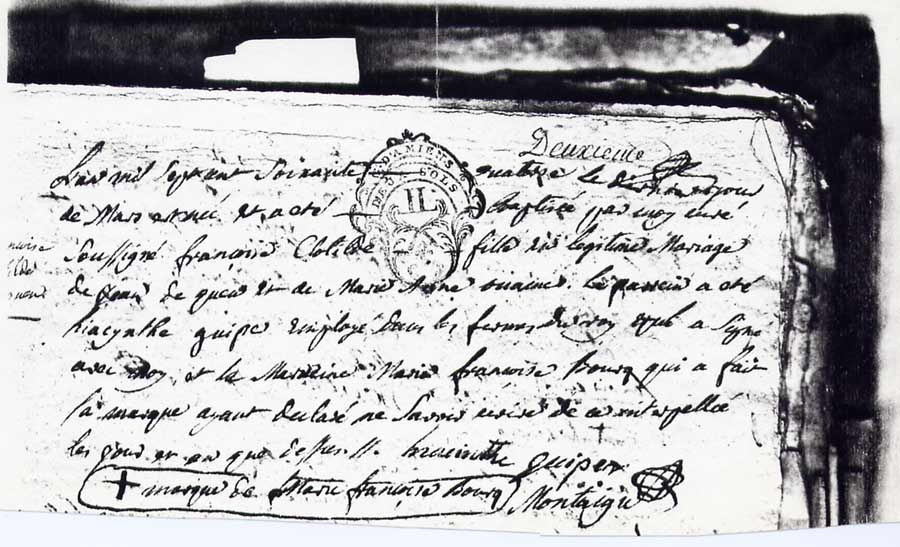 Deuxieme
G. D'AMIENS
DEUX SOLS
L'an mil Sept cent Soixante quatorze le dernier jour
de Mars est née et a été baptisée par moy curé
Soussigné françoise Clotilde fille en legitime Mariage
de Jean de queu et de Marie Anne . Le parrein a été
hiacynthe quipe Employé dans les fermes du roy a Signé
avec moy et la Mareine Marie francoise Bourg qui a fait
sa marque ayant declaré ne Savoir ecrire de ce interpellée
les jour et an que dessus hiacinthe quiper
+ marque de Marie françoise bourg Montaigu